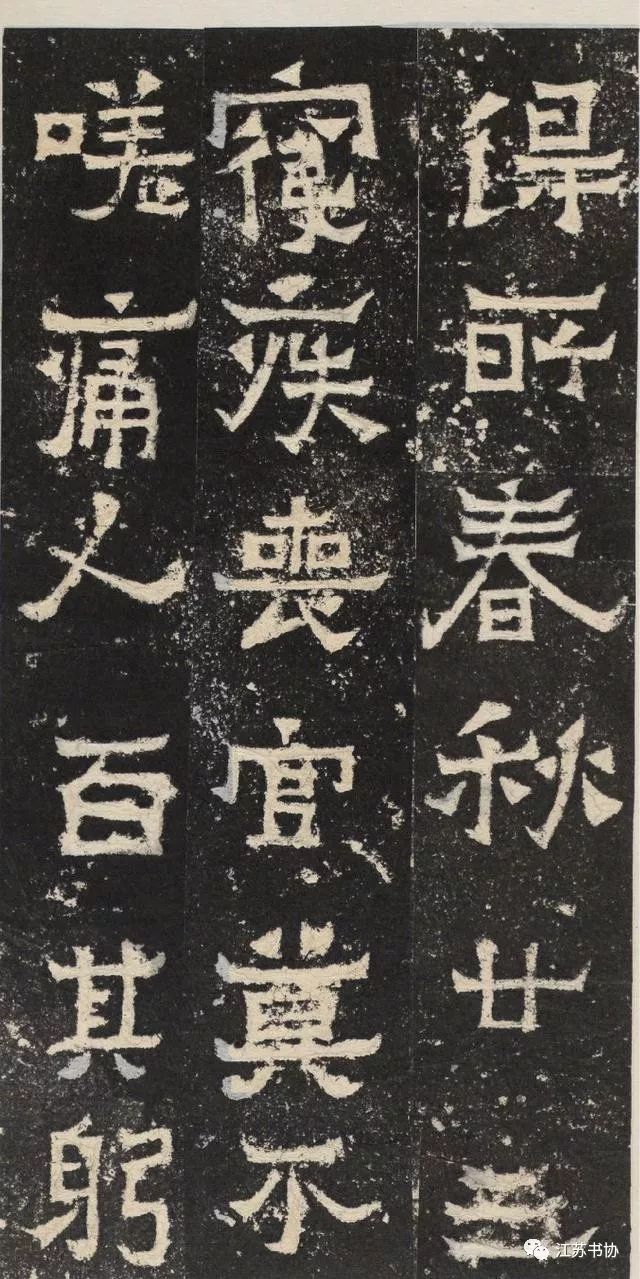 得所春秋廿五
寑疾喪官莫不
嗟痛人百其躬
江苏书协